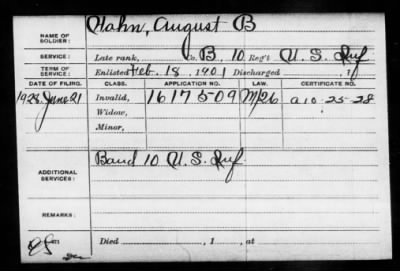 NAME OF SOLDIER: Hahn, August B
SERVICE: Late rank, Co. B, 10 Reg't U. S. Inf
TERM OF SERVICE: Enlisted Feb. 18, 1901 Discharged , 1
DATE OF FILING. CLASS. APPLICATION NO. LAW. CERTIFICATE NO.
1928 June 21 Invalid, 1617509 M/26 a 10-25-28
Widow,
Minor,
ADDITIONAL SERVICES: Band 10 U. S. Inf
REMARKS:
Died , 1 , at